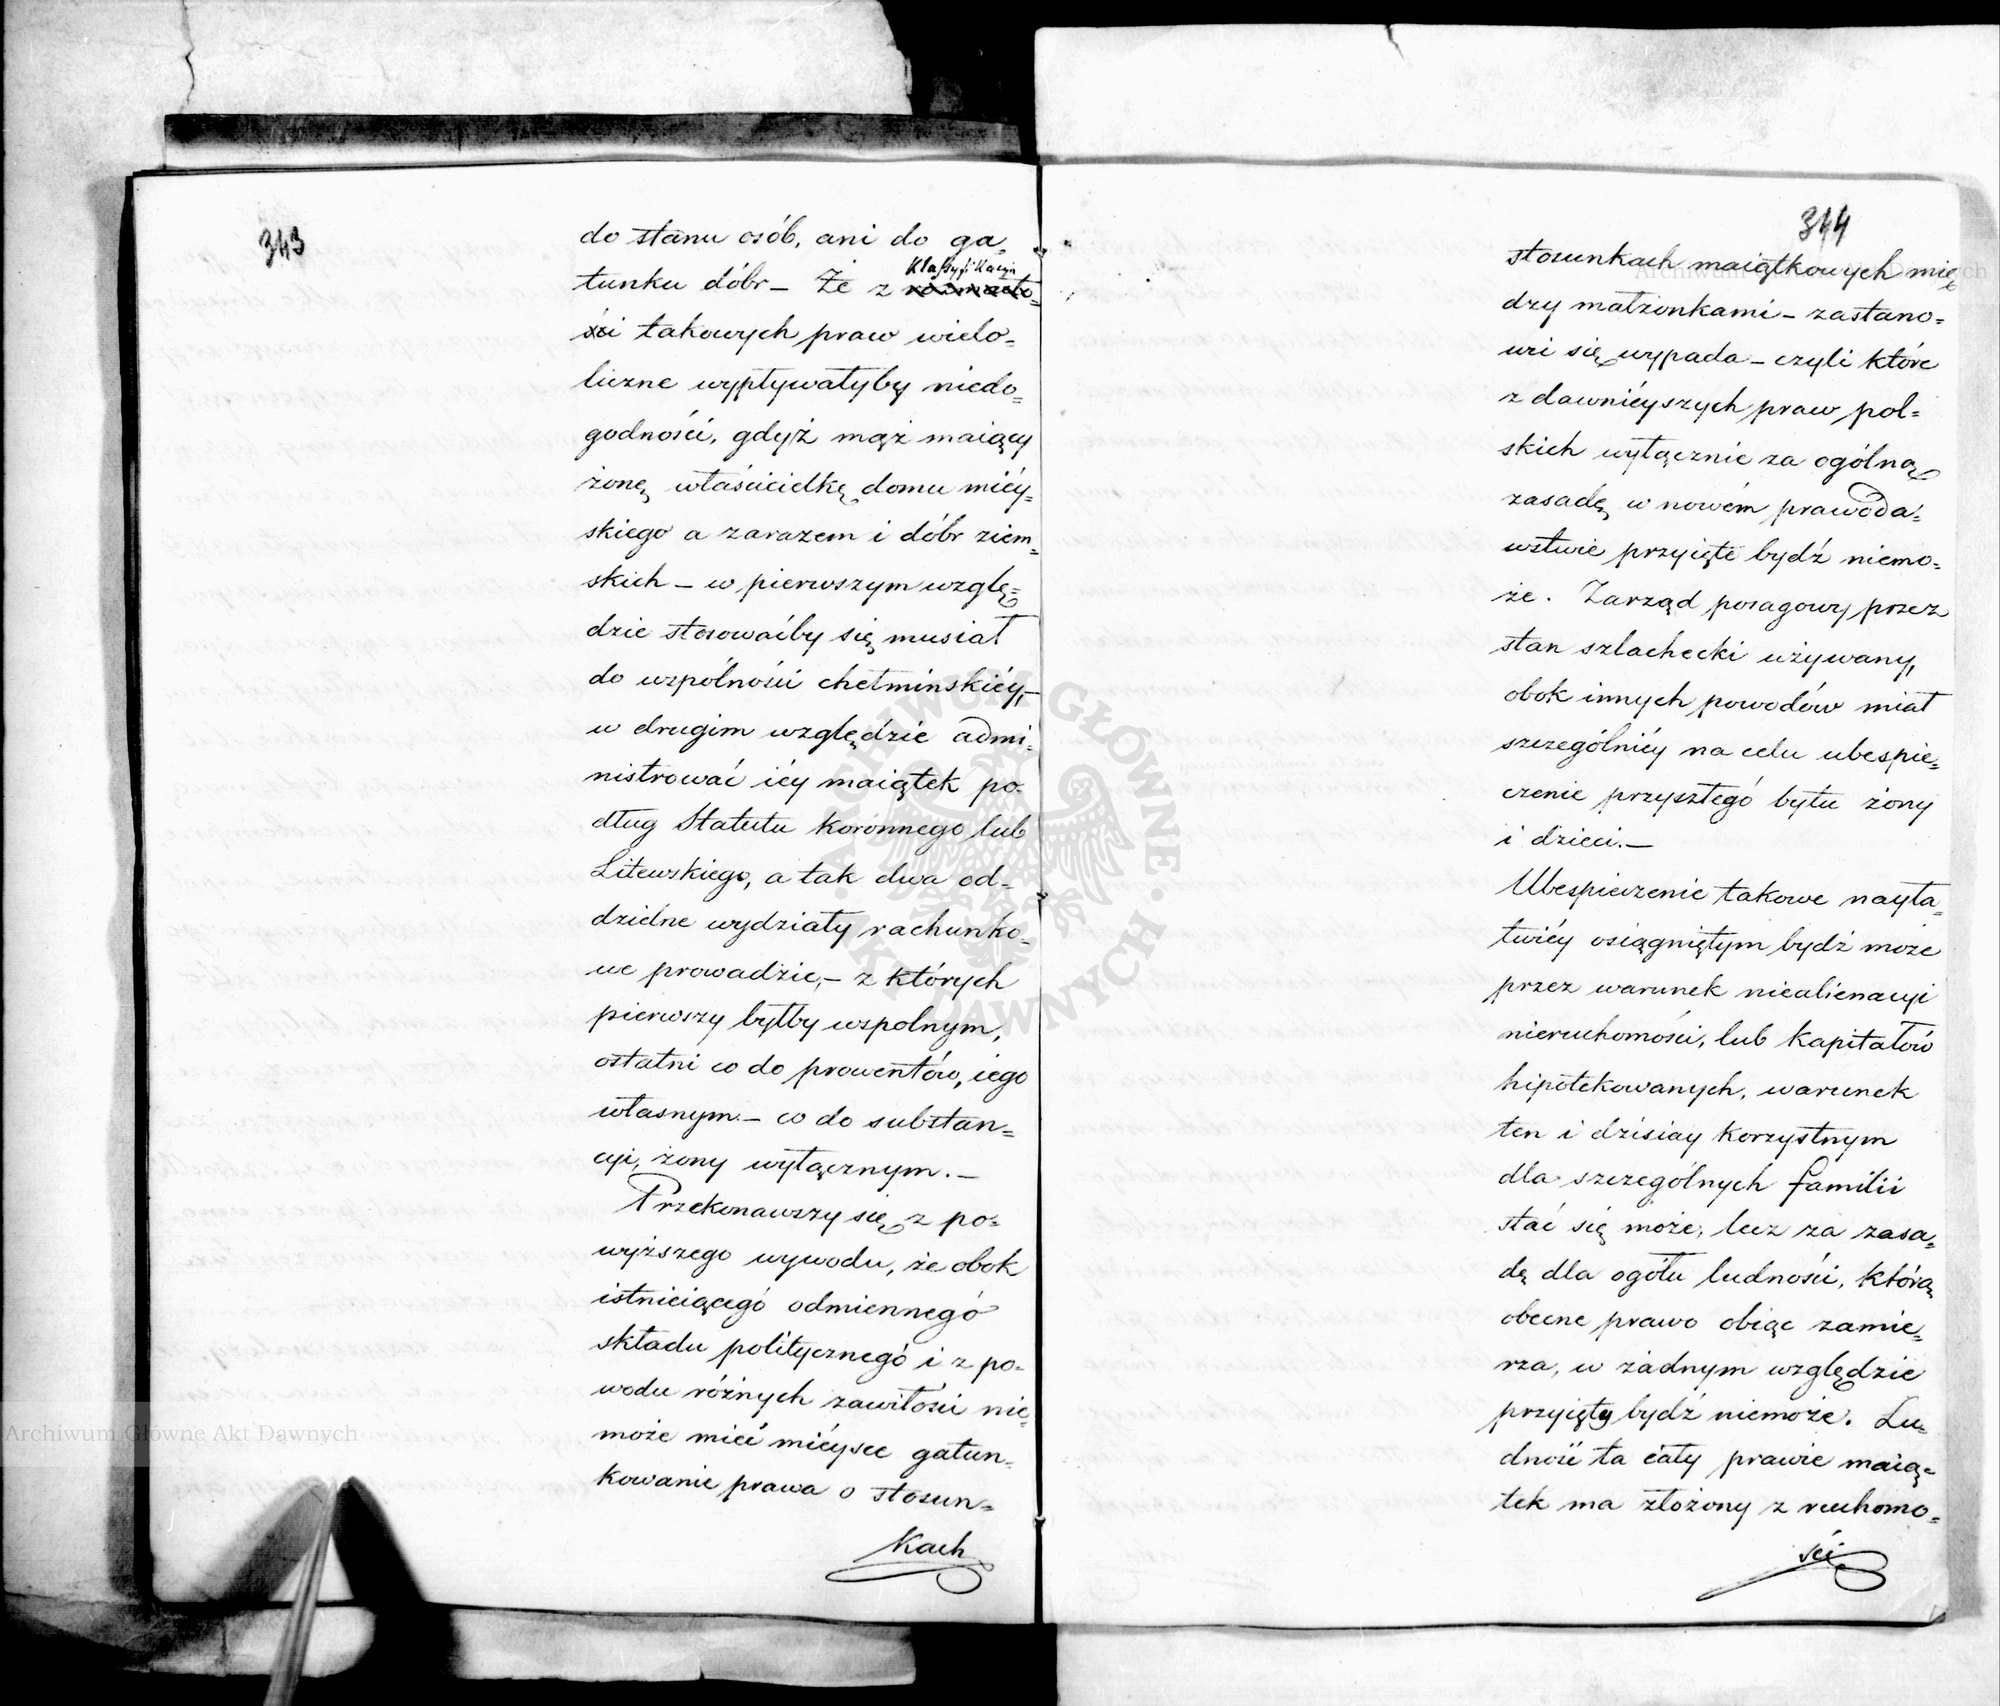 343
do stanu osób, ani do ga=
tunku dóbr – Że z klassyfikacyi
takowych praw wielo=
liczne wypływałyby niedo=
godności, gdyż mąż maiący
żonę właścicielkę domu miéy=
skiego a zarazem i dóbr ziem=
skich – w pierwszym wzglę=
dzie stosowaćby się musiał
do wspólności chełminskiéy, –
w drugim względzie admi=
nistrować iéy maiątek po=
dług Statutu Koronnego lub
Litewskiego, a tak dwa od=
dzielne wydziały rachunko=
we prowadzić, – z których
pierwszy byłby wspolnym,
ostatni co do prowentów, iego
własnym – co do substan=
cyi, żony wyłącznym. –
Przekonawszy się z po=
wyższego wywodu, że obok
istnieiącego odmiennego
składu politycznego i z po=
wodu różnych zawiłości nie=
może mieć miéysce gatun=
kowanie prawa o stosun=
kach
344
stosunkach maiątkowych mię
dzy małżonkami – zastano=
wi się wypada – czyli które
z dawniéyszych praw pol=
skich wyłącznie za ogólną
zasadę w nowém prawoda=
wstwie przyięte bydź niemo=
że. Zarząd posagowy przez
stan szlachecki używany,
obok innych powodów miał
szczególniéy na celu ubespie=
czenie przyszłego bytu żony
i dzieci. –
Ubespieczenie takowe nayła=
twiéy osiągniętym bydź może
przez warunek niealienacyi
nieruchomości, lub kapitałów
hipotekowanych, warunek
ten i dzisiay korzystnym
dla szczególnych familii
stać się może, lecz za zasa=
dę dla ogółu ludności, którą
obecne prawo obiąc zamie=
rza, w żadnym względzie
przyięty bydź niemoże. Lu=
dność ta cały prawie maią=
tek ma złożony z ruchomo=
ści
Archiwum Główne Akt Dawnych
Archiwum Główne Akt Dawnych
ARCHIWUM GŁÓWNE AKT DAWNYCH